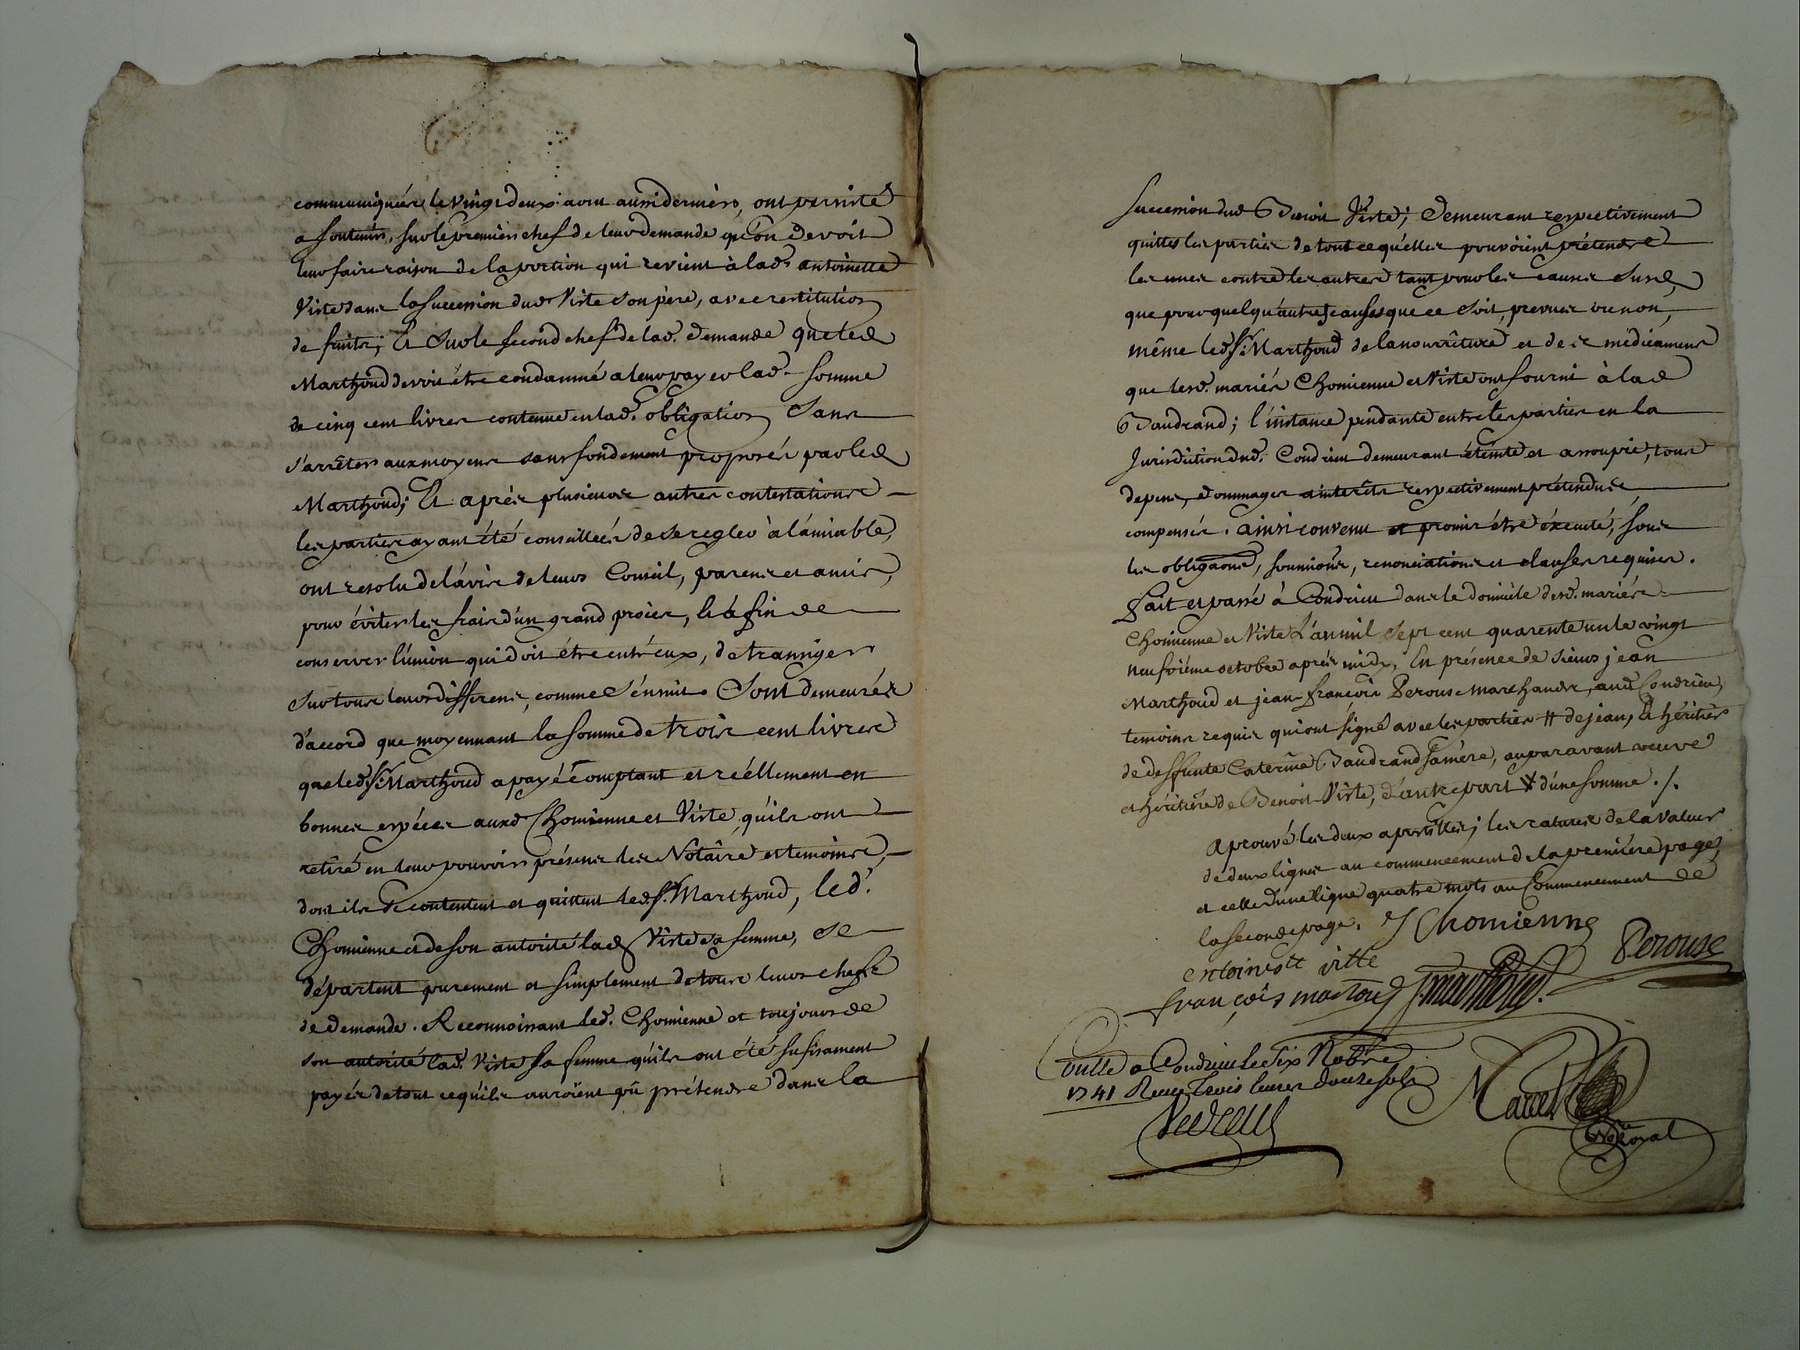 communiquées le vingt deux aout aussi derniers, ont persisté
a soutenir, sur le premier chef de leur demande qu'on devoit
leur faire raison de la portion qui revient à lad. antoinette
Viste dans la succession dud. Viste son père, avec restitution
de fruits; Et sur le second chef de lad. demande que led.
Marthoud devoit être condamné a leur payer lad. somme
de cinq cent livres contenue en lad. obligation sans
s'arrêter aux moyens sans fondement proposés par led.
Marthoud; Et après plusieurs autres contestations
les parties ayant été conseilleés de se regler à l'amiable,
ont resolu de l'avis de leurs Conseil, parens et amis,
pour éviter les frais d'un grand procés, et à fin de
conserver l'union qui doit être entr'eux, de transiger
sur tous leurs differens, comme s'ensuit. Sont demeurés
d'accord que moyennant la somme de trois cent livres
que led. Sr. Marthoud a payé comptant et réellement en
bonnes espéces auxd. Chomienne et Viste, qu'ils ont
retiré en leur pouvoir présens les Notaire et temoins,
dont ils se contentent et quittent led. Sr. Marthoud, led.
Chomienne et de son autorité lad. Viste sa femme, se
départent purement et simplement de tous leurs chefs
de demande. Reconnoissant led. Chomienne et toujours de
son autorité lad. Viste sa femme qu'ils ont été sufisament
payés de tout ce qu'ils auroient pû prétendre dans la
succession dud. Benoit Viste; demeurant respectivement
quittes les parties de tout ce qu'elles pouvoient prétendre
les unes contre les autres tant pour les causes susd.
que pour quelqu'autres causes que ce soit, prevues ou non,
même led. Sr. Marthoud de la nourriture et des médicamens
que lesd. mariés Chomienne et Viste ont fourni à lad.
Baudrand; l'instance pendante entre les parties en la
Jurisdiction dud. Condrieu demeurant éteinte et assoupie, tous
depens, dommages a interêts respectivement prétendus
compensés. ainsi convenu et promis être éxecuté, sous
les obligaons, soumions, renonciations et clauses requises.
Fait et passé à Condrieu dans le domicile desd. mariés
Chomienne et Viste L'an mil sept cent quarente un le vingt
neufviéme octobre aprés midy, En présence de sieurs jean
Marthoud et jean-françois Perouse marchands, aud. Condrieu,
temoins requis qui ont signé avec les parties # de jean, Et héritier
de deffunte Caterine Baudrand sa mère, auparavant veuve
et héritière de Benoit Viste, d'autre part # d'une somme ./.
Aprouvé les deux apostilles; les ratures de la valeur
de deux lignes au commencement de la premiére page,
et celle d'une ligne quatre mots au Commencement de
la seconde page. J Chomienne
Perouse
entoinette vitte
françois martoud J. marthoud.
Cullé a Condrieu le six Nobre
1741 Reçu trois livres douze sols
Marcel
Nore Royal